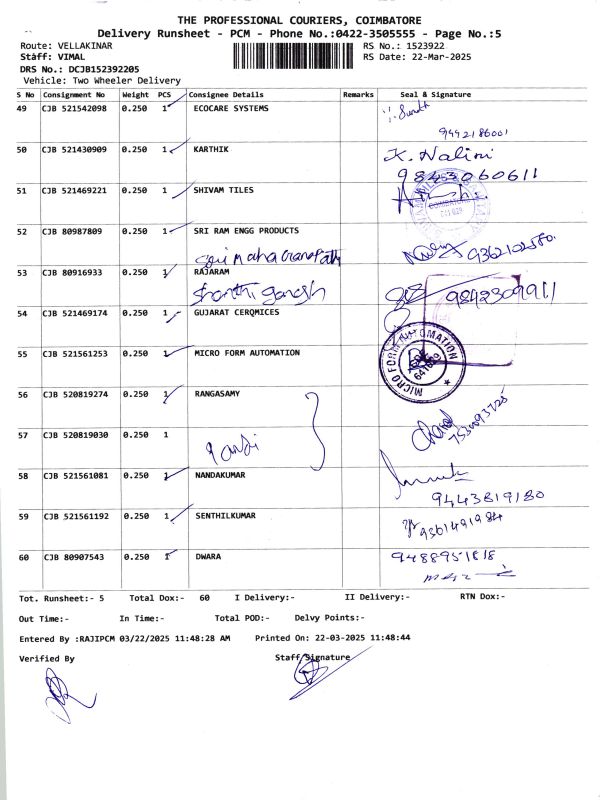 THE PROFESSIONAL COURIERS, COIMBATORE
Delivery Runsheet - PCM - Phone No.:0422-3505555 - Page No.:5
Route: VELLAKINAR RS No.: 1523922
Staff: VIMAL RS Date: 22-Mar-2025
DRS No.: DCJB152392205
Vehicle: Two Wheeler Delivery
S No Consignment No Weight PCS Consignee Details Remarks Seal & Signature
49 CJB 521542098 0.250 1 ECOCARE SYSTEMS
9442186001
50 CJB 521430909 0.250 1 KARTHIK K. Nalini
9843060611
51 CJB 521469221 0.250 1 SHIVAM TILES
52 CJB 80987809 0.250 1 SRI RAM ENGG PRODUCTS
Sri Maha Ganapathy 9362102580.
53 CJB 80916933 0.250 1 RAJARAM
Shanthi ganesh 9842309911
54 CJB 521469174 0.250 1 GUJARAT CERQMICES
55 CJB 521561253 0.250 1 MICRO FORM AUTOMATION
MICRO FORM AUTOMATION
56 CJB 520819274 0.250 1 RANGASAMY
57 CJB 520819030 0.250 1
58 CJB 521561081 0.250 1 NANDAKUMAR
9443819180
59 CJB 521561192 0.250 1 SENTHILKUMAR
9361491984
60 CJB 80907543 0.250 1 DWARA 9488951818
Tot. Runsheet:- 5 Total Dox:- 60 I Delivery:- II Delivery:- RTN Dox:-
Out Time:- In Time:- Total POD:- Delvy Points:-
Entered By :RAJIPCM 03/22/2025 11:48:28 AM Printed On: 22-03-2025 11:48:44
Verified By Staff Signature